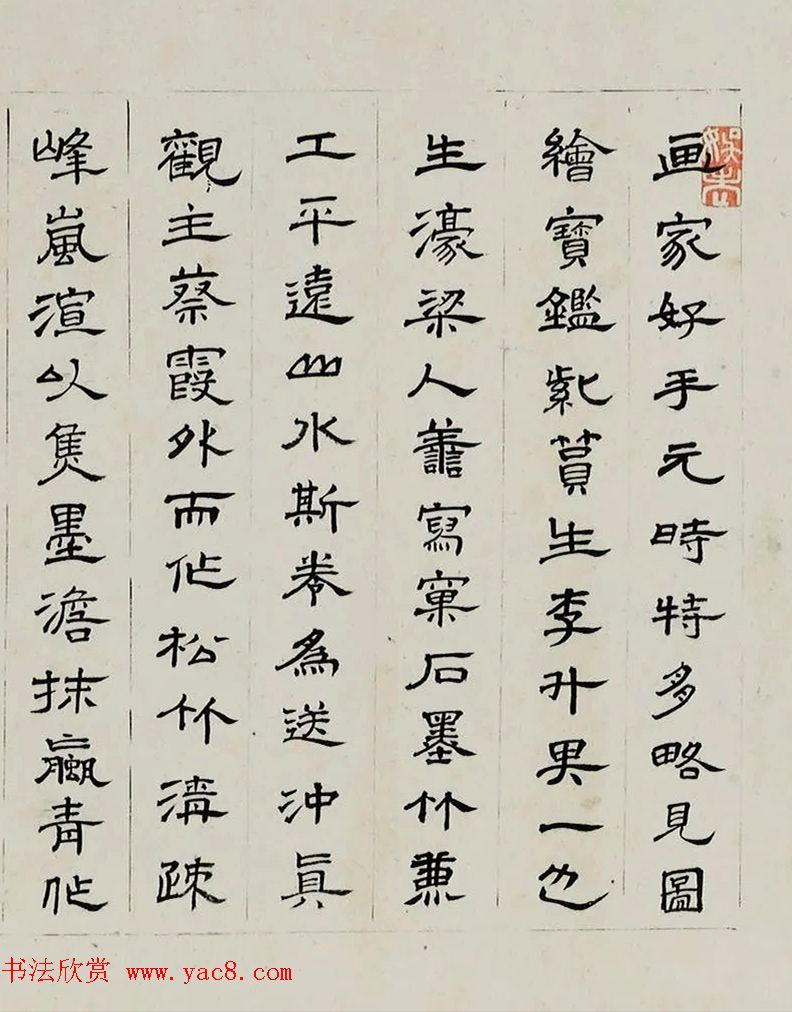 画家好手元時特多略見圖
繪寶鑑紫篔生李升其一也
生濠梁人善寫窠石墨竹兼
工平遠山水斯卷為送沖眞
觀主蔡霞外而作松竹清疎
峰嵐渲以焦墨澹抹蠃青作
书法欣赏 www.yac8.com